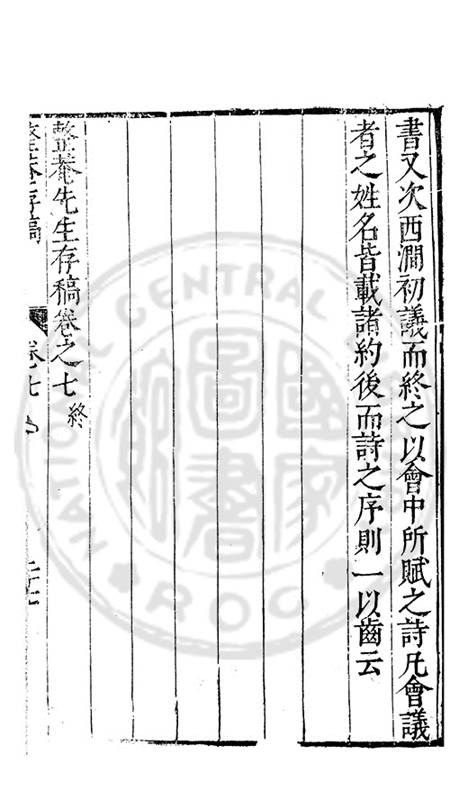 書又次西澗初議而終之以會中所賦之詩凡會議
者之姓名皆載諸約後而詩之序則一以齒云
整菴先生存稿卷之七終
整菴存稿
卷七
NATIONAL CENTRAL LIBRARY
R.O.C.
國家圖書